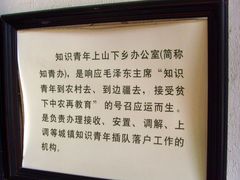 知识青年上山下乡办公室(简称
知青办)，是响应毛泽东主席“知识
青年到农村去、到边疆去，接受贫
下中农再教育”的号召应运而生。
是负责办理接收、安置、调解、上
调等城镇知识青年插队落户工作的
机构。